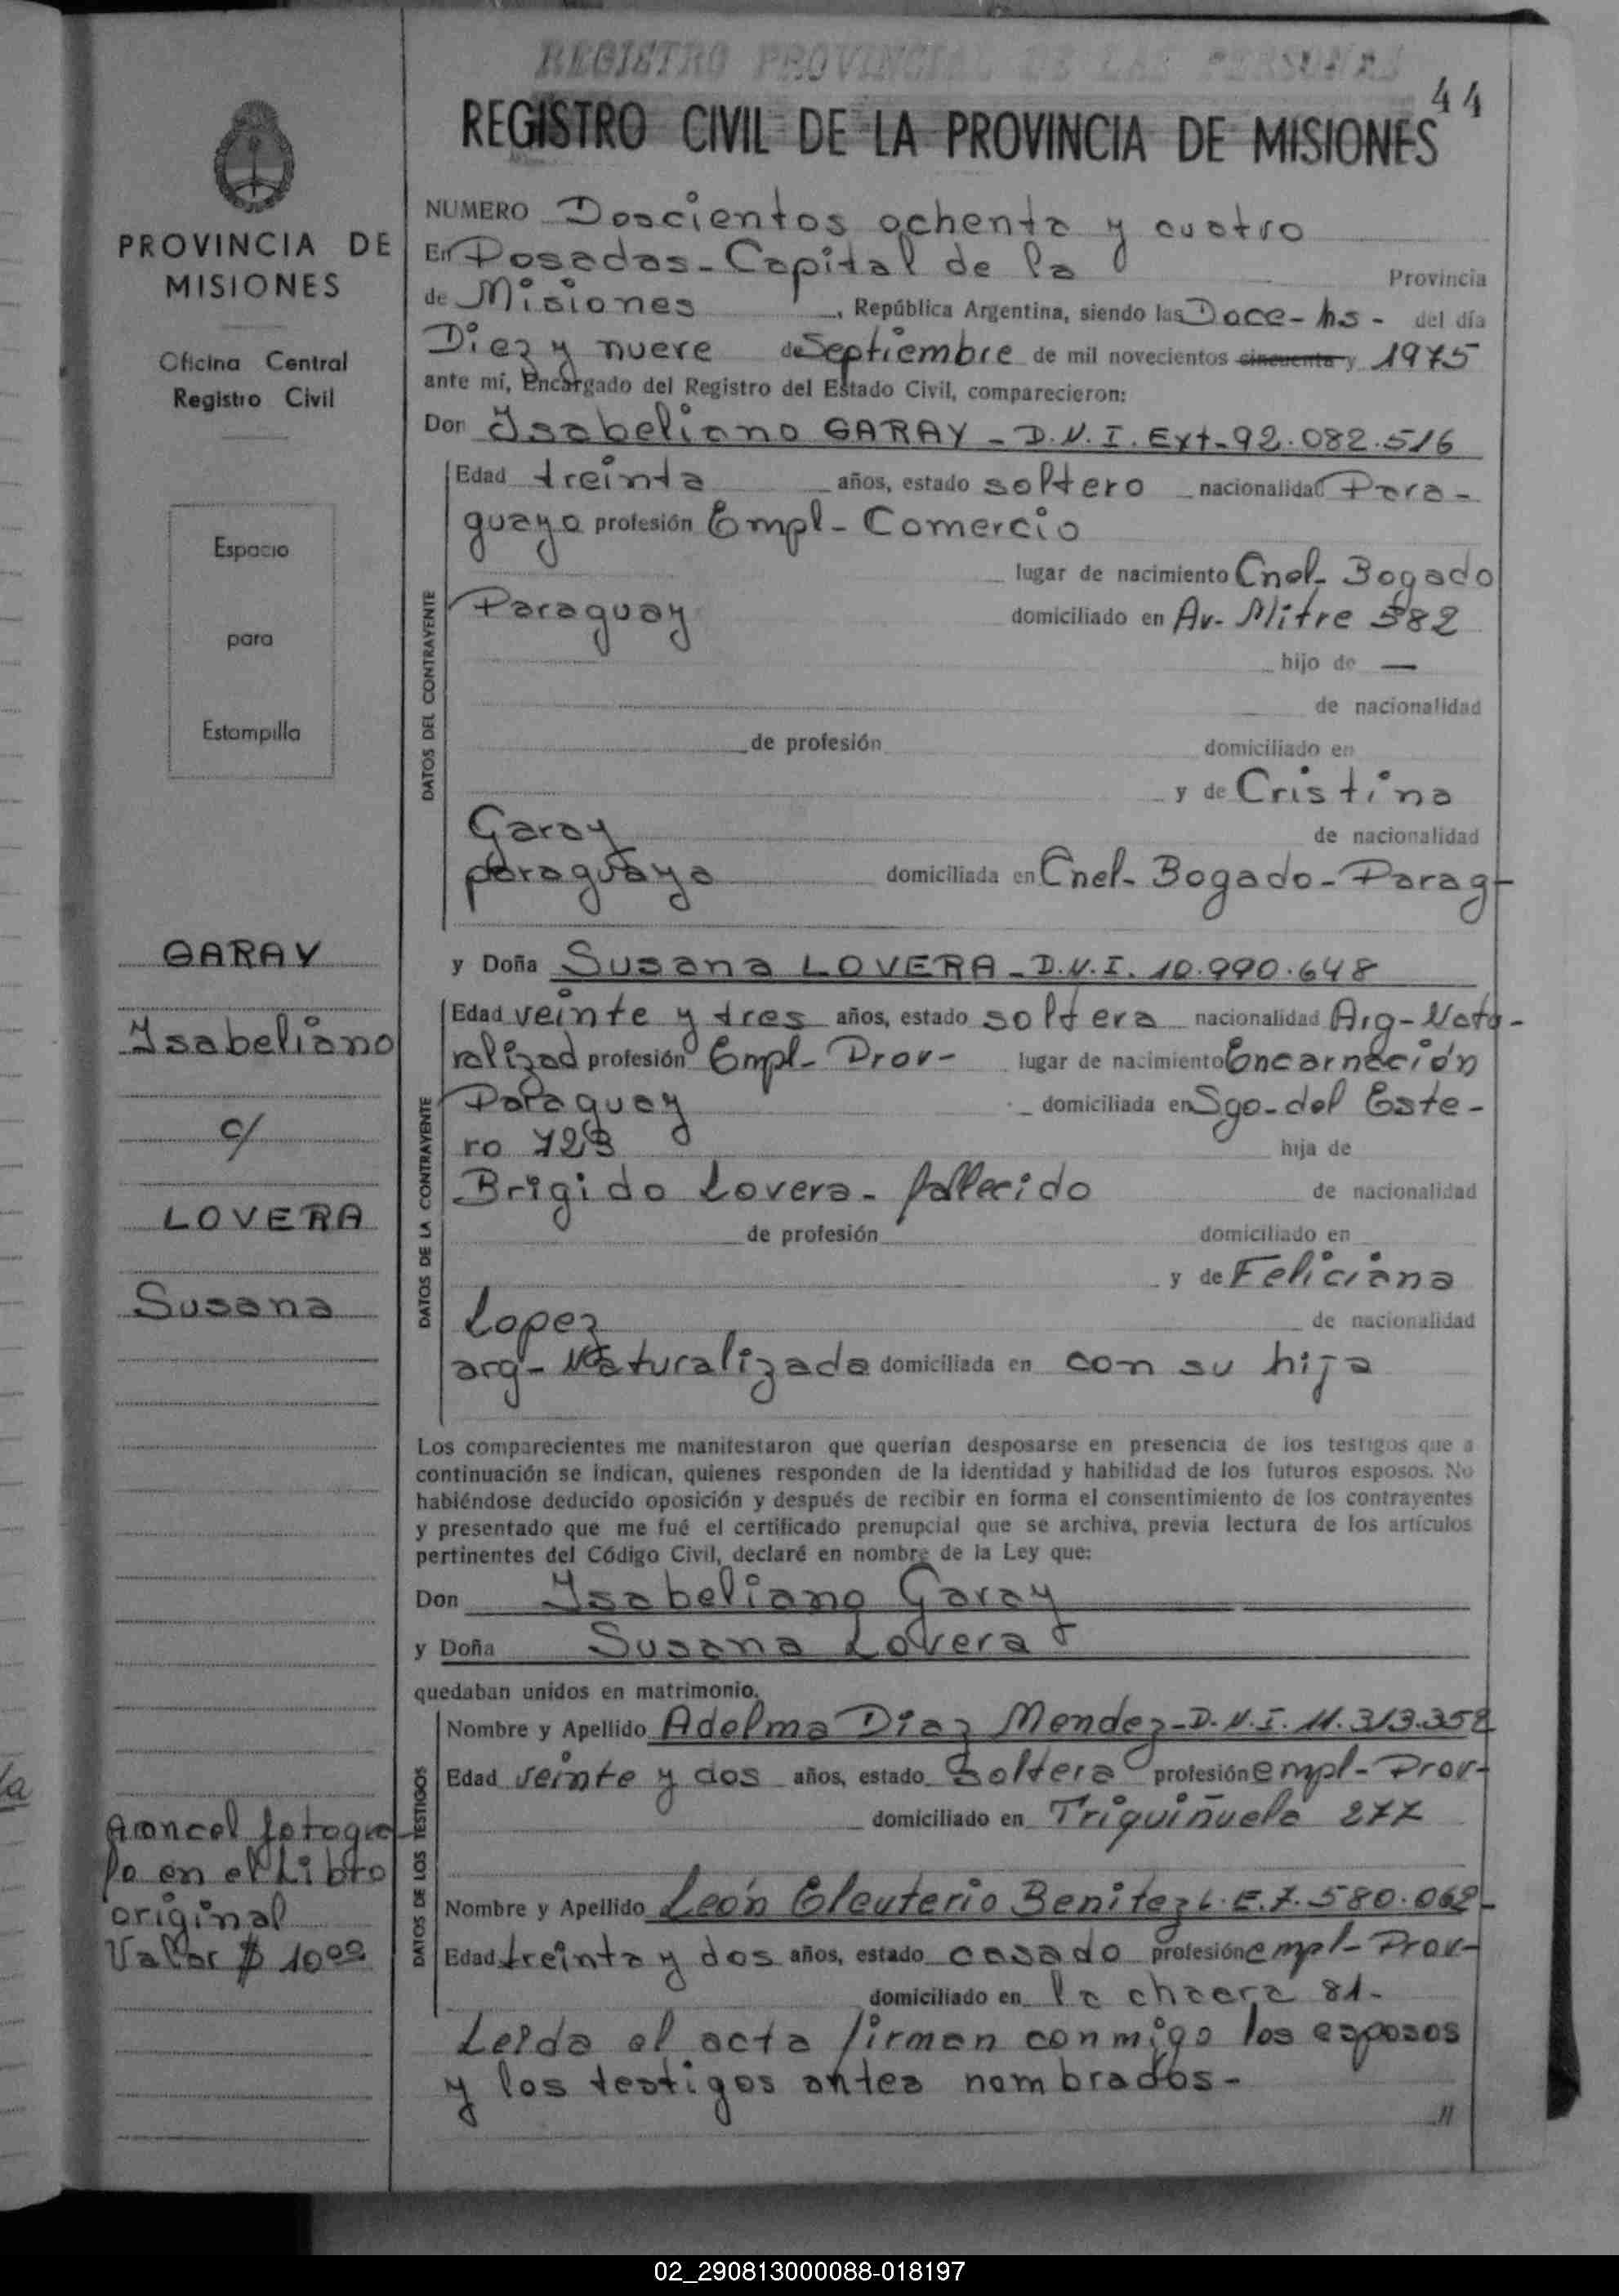 REGISTRO PROVINCIAL DE LAS PERSONAS
44
REGISTRO CIVIL DE LA PROVINCIA DE MISIONES
PROVINCIA DE
MISIONES
Oficina Central
Registro Civil
Espacio
para
Estampilla
GARAY
Isabeliano
c/
LOVERA
Susana
Arancel fotogra-
do en el Libro
original
Valor $ 10,00
NUMERO Doscientos ochenta y cuatro
En Posadas - Capital de la Provincia
de Misiones, República Argentina, siendo las Doce - hs - del día
Diez y nueve de Septiembre de mil novecientos cincuenta y 1975
ante mí, Encargado del Registro del Estado Civil, comparecieron:
Don Isabeliano GARAY - D.N.I. Ext - 92.082.516
DATOS DEL CONTRAYENTE
Edad treinta años, estado soltero nacionalidad Para-
guaya profesión Empl - Comercio
lugar de nacimiento Cnel - Bogado
Paraguay domiciliado en Av - Mitre 382
hijo de —
de nacionalidad
de profesión domiciliado en
y de Cristina
Garay de nacionalidad
paraguaya domiciliada en Cnel - Bogado - Parag-
y Doña Susana LOVERA - D.N.I. 10.990.648
DATOS DE LA CONTRAYENTE
Edad veinte y tres años, estado soltera nacionalidad Arg - Natu-
ralizad profesión Empl - Prov - lugar de nacimiento Encarnación
Paraguay domiciliada en Sgo - del Este-
ro 723 hija de
Brigido Lovera - fallecido de nacionalidad
de profesión domiciliado en
y de Feliciana
Lopez de nacionalidad
arg - Naturalizada domiciliada en con su hija
Los comparecientes me manifestaron que querían desposarse en presencia de los testigos que a
continuación se indican, quienes responden de la identidad y habilidad de los futuros esposos. No
habiéndose deducido oposición y después de recibir en forma el consentimiento de los contrayentes
y presentado que me fué el certificado prenupcial que se archiva, previa lectura de los artículos
pertinentes del Código Civil, declaré en nombre de la Ley que:
Don Isabeliano Garay
y Doña Susana Lovera
quedaban unidos en matrimonio.
DATOS DE LOS TESTIGOS
Nombre y Apellido Adelma Diaz Mendez - D.N.I. 11.313.352
Edad veinte y dos años, estado Soltera profesión empl - Prov-
domiciliado en Triquiñuela 277
Nombre y Apellido León Eleuterio Benitez L.E. 7.580.062 -
Edad treinta y dos años, estado casado profesión empl - Prov -
domiciliado en la chacra 81 -
Leída el acta firman conmigo los esposos
y los testigos antes nombrados -
//
02_290813000088-018197